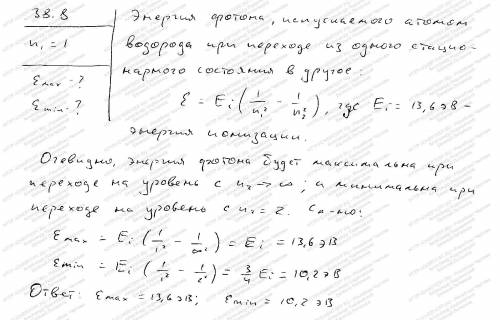 38.8
n₁ = 1
Emax - ?
Emin - ?
Энергия фотона, испускаемого атомом
водорода при переходе из одного стацио-
нарного состояния в другое:
ℰ = Ei (1/n₁² - 1/n₂²), где Ei = 13,6 эВ -
энергия ионизации.
Очевидно, энергия фотона будет максимальна при
переходе на уровень с n₂ → ∞; а минимальна при
переходе на уровень с n₂ = 2. Сл-но:
ℰmax = Ei (1/1² - 1/∞²) = Ei = 13,6 эВ
ℰmin = Ei (1/1² - 1/2²) = 3/4 Ei = 10,2 эВ
Ответ: ℰmax = 13,6 эВ; ℰmin = 10,2 эВ